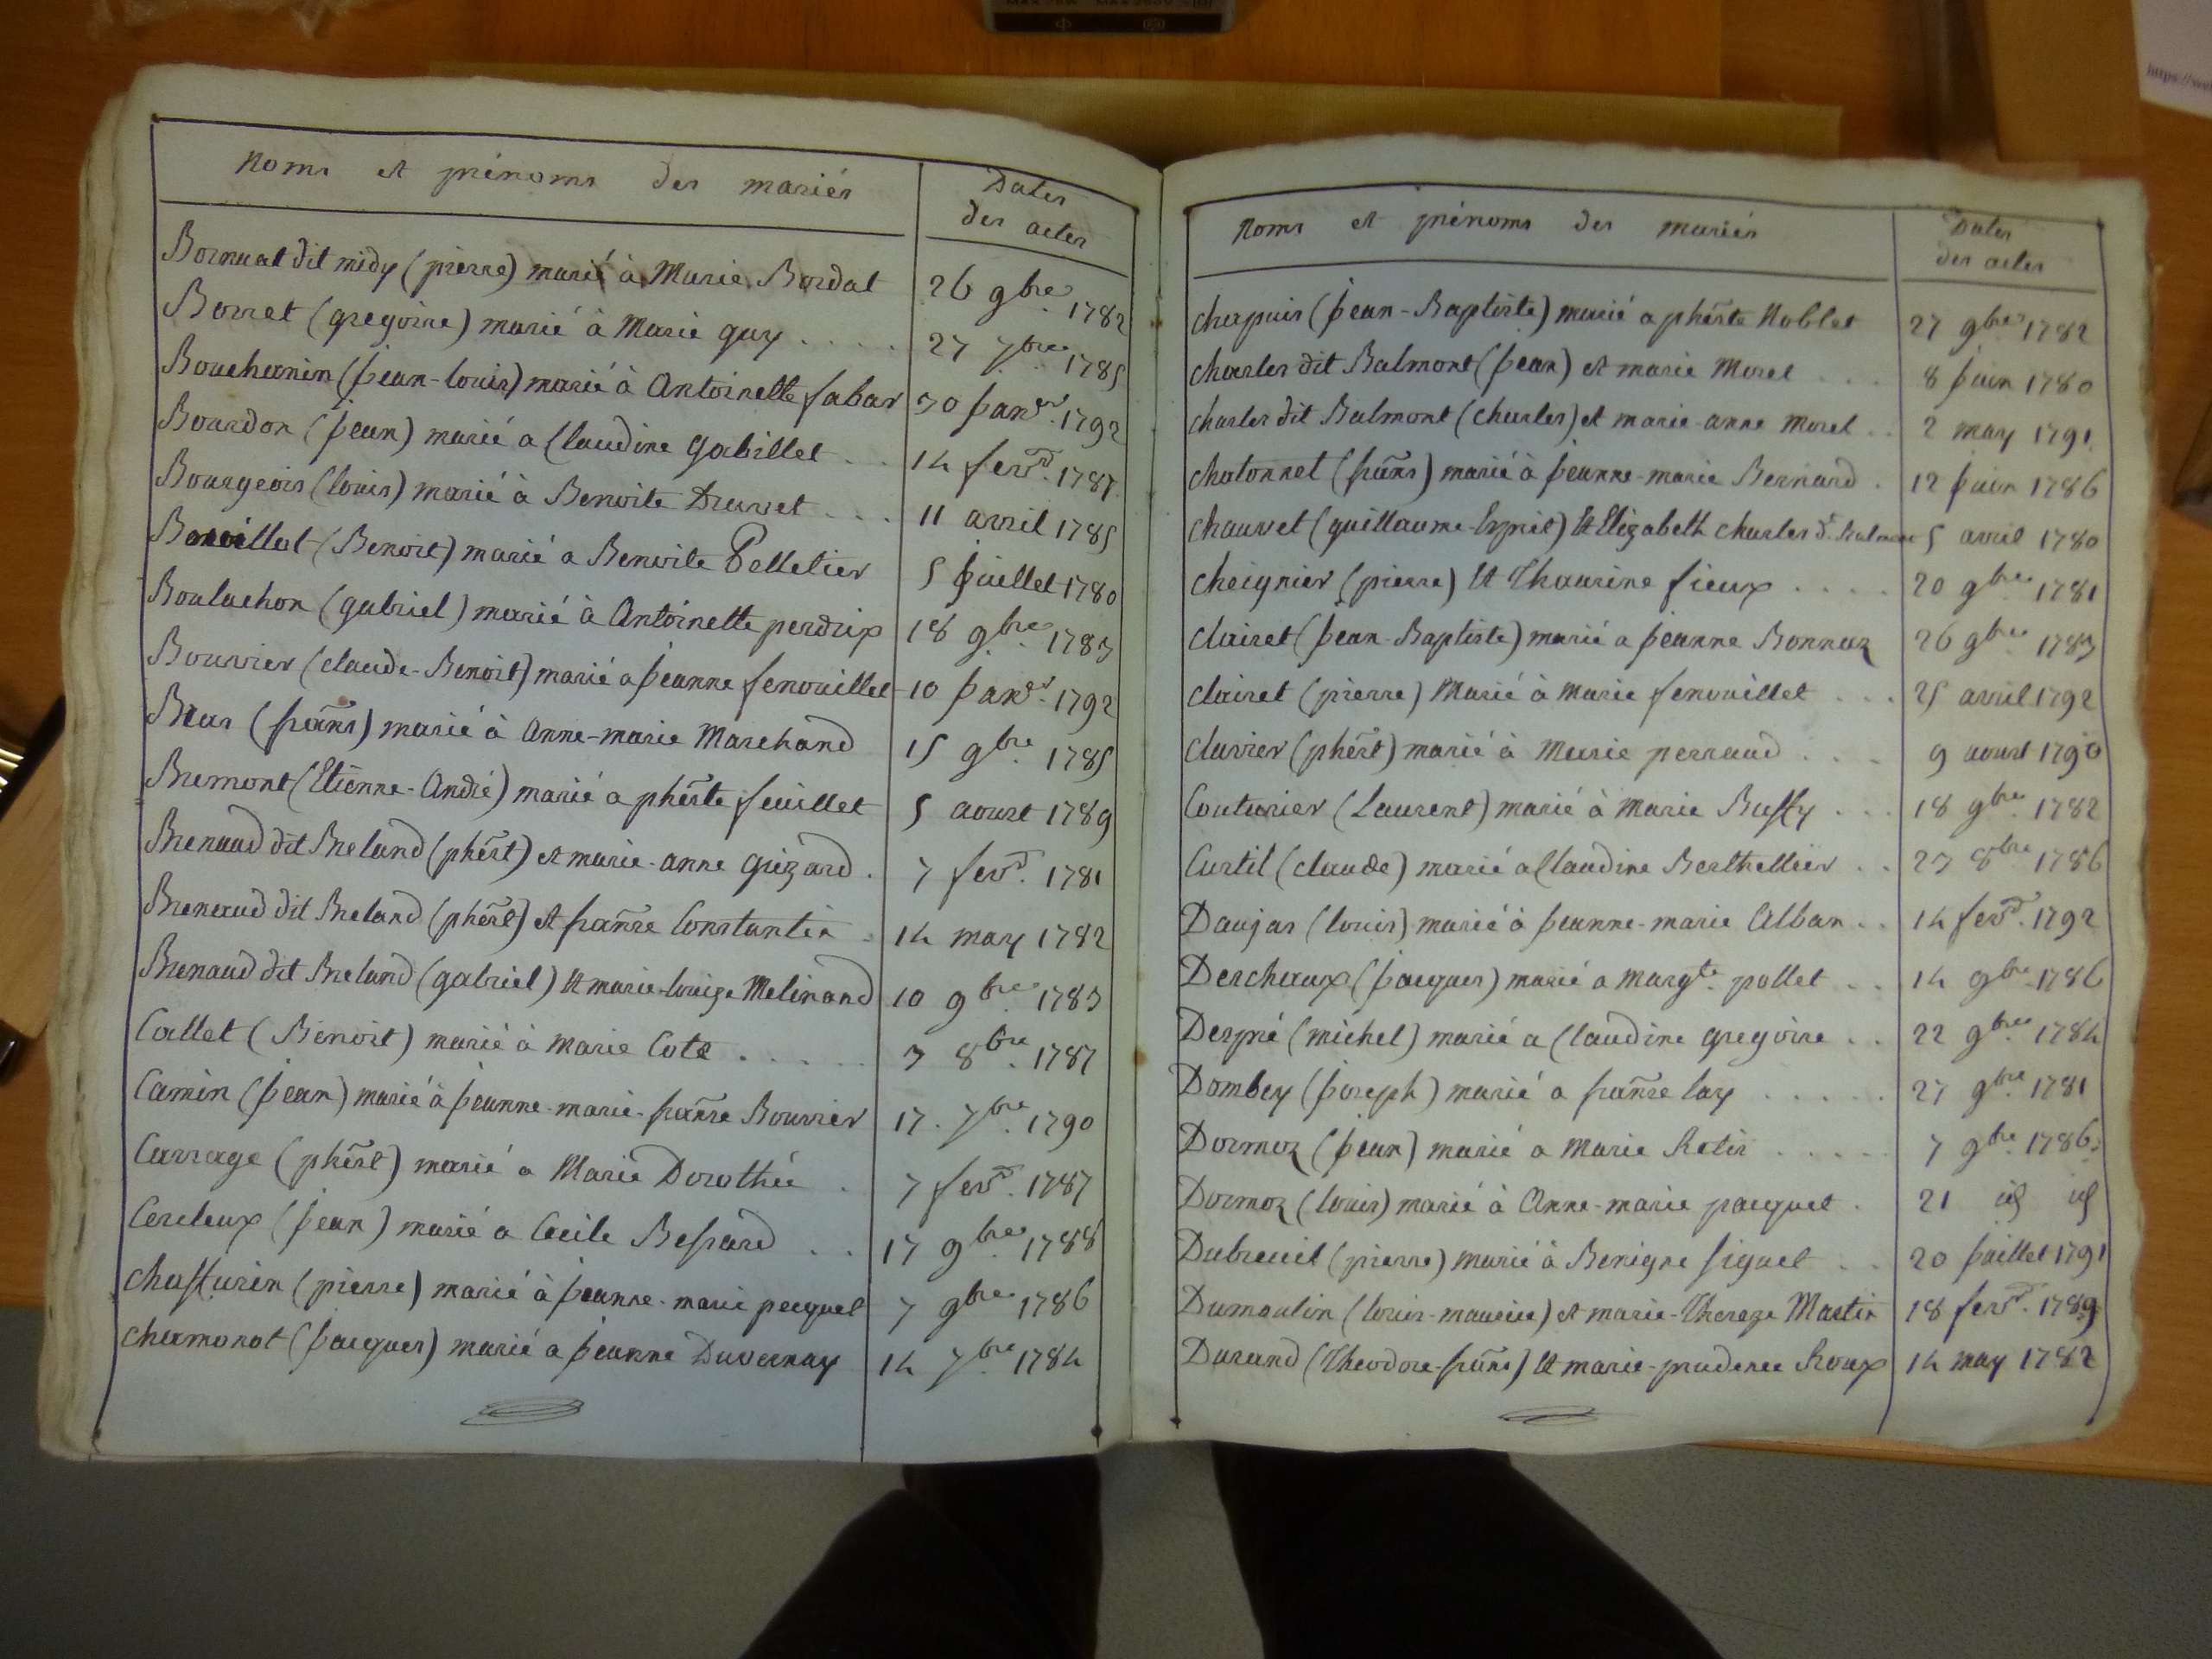 Noms et prénoms des mariés Dates des actes
Bornuat dit midy (pierre) marié à Marie Bordat 26 9bre 1782
Borret (gregoire) marié à Marie guy 27 7bre 1785
Bouchanin (jean-louis) marié à Antoinette fabar 30 janvr. 1792
Bourdon (jean) marié a Claudine Gabillet 14 fevr. 1787
Bourgeois (louis) marié à Benoite Druvet 11 avril 1785
Bovillat (Benoit) marié a Benoite Pelletier 5 juillet 1780
Boulachon (gabriel) marié à Antoinette perdrix 18 9bre 1783
Bouvier (claude-Benoit) marié a jeanne fenouillet 10 janvr. 1792
Bras (frans) marié à Anne-marie Marchand 15 9bre 1785
Bremont (Etienne-André) marié a phërte feuillet 5 aoust 1789
Brenaud dit Breland (phërt) et marie-anne Guizard 7 fevr. 1781
Brenaud dit Breland (phërt) et franse Constantin 14 may 1782
Brenaud dit Breland (gabriel) et marie-louize Melinand 10 9bre 1783
Callet (Benoit) marié à Marie Cote 3 8bre 1787
Camin (jean) marié à jeanne-marie-franse Bouvier 17 7bre 1790
Carrage (phërt) marié a Marie Dorothée 7 fevr. 1787
Cercleux (jean) marié a Cecile Besnard 17 9bre 1788
Chassurin (pierre) marié à jeanne-marie pecquet 7 9bre 1786
Chamonot (jacques) marié a jeanne Duvernay 14 7bre 1784
Noms et prénoms des mariés Dates des actes
Chapuis (jean-Baptiste) marié a phërte Noblet 27 9bre 1782
Charles dit Balmont (jean) et marie Morel 8 juin 1780
Charles dit Balmont (charles) et marie-anne Morel 2 may 1791
Chatonnet (frans) marié à jeanne-marie Bernard 12 juin 1786
Chauvet (guillaume-Esprit) et Elizabeth Charles dt. Balmont 5 avril 1780
Cheignier (pierre) et Thaurine fieux 20 9bre 1781
Clairet (jean-Baptiste) marié a jeanne Bonnaz 26 9bre 1783
Clairet (pierre) Marié à Marie fenouillet 25 avril 1792
Clavier (phërt) marié à Marie perraud 9 aoust 1790
Couturier (Laurent) marié à Marie Bussy 18 9bre 1782
Curtil (claude) marié a Claudine Berthellier 23 8bre 1786
Daujas (louis) marié à jeanne-marie Alban 14 fevr. 1792
Deschaux (jacques) marié a Margte. pollet 14 9bre 1786
Despré (michel) marié a Claudine Gregoire 22 9bre 1784
Dombey (joseph) marié a franse lay 27 9bre 1781
Dormoz (jean) marié a Marie Retis 7 9bre 1786
Dormoz (louis) marié à Anne-marie pacquet 21 id id
Dubreuil (pierre) marié à Benigne siguet 20 juillet 1791
Dumoulin (louis-maurice) et marie-Thereze Martin 18 fevr. 1789
Durand (Theodore-frans) et marie-prudence Roux 14 may 1782